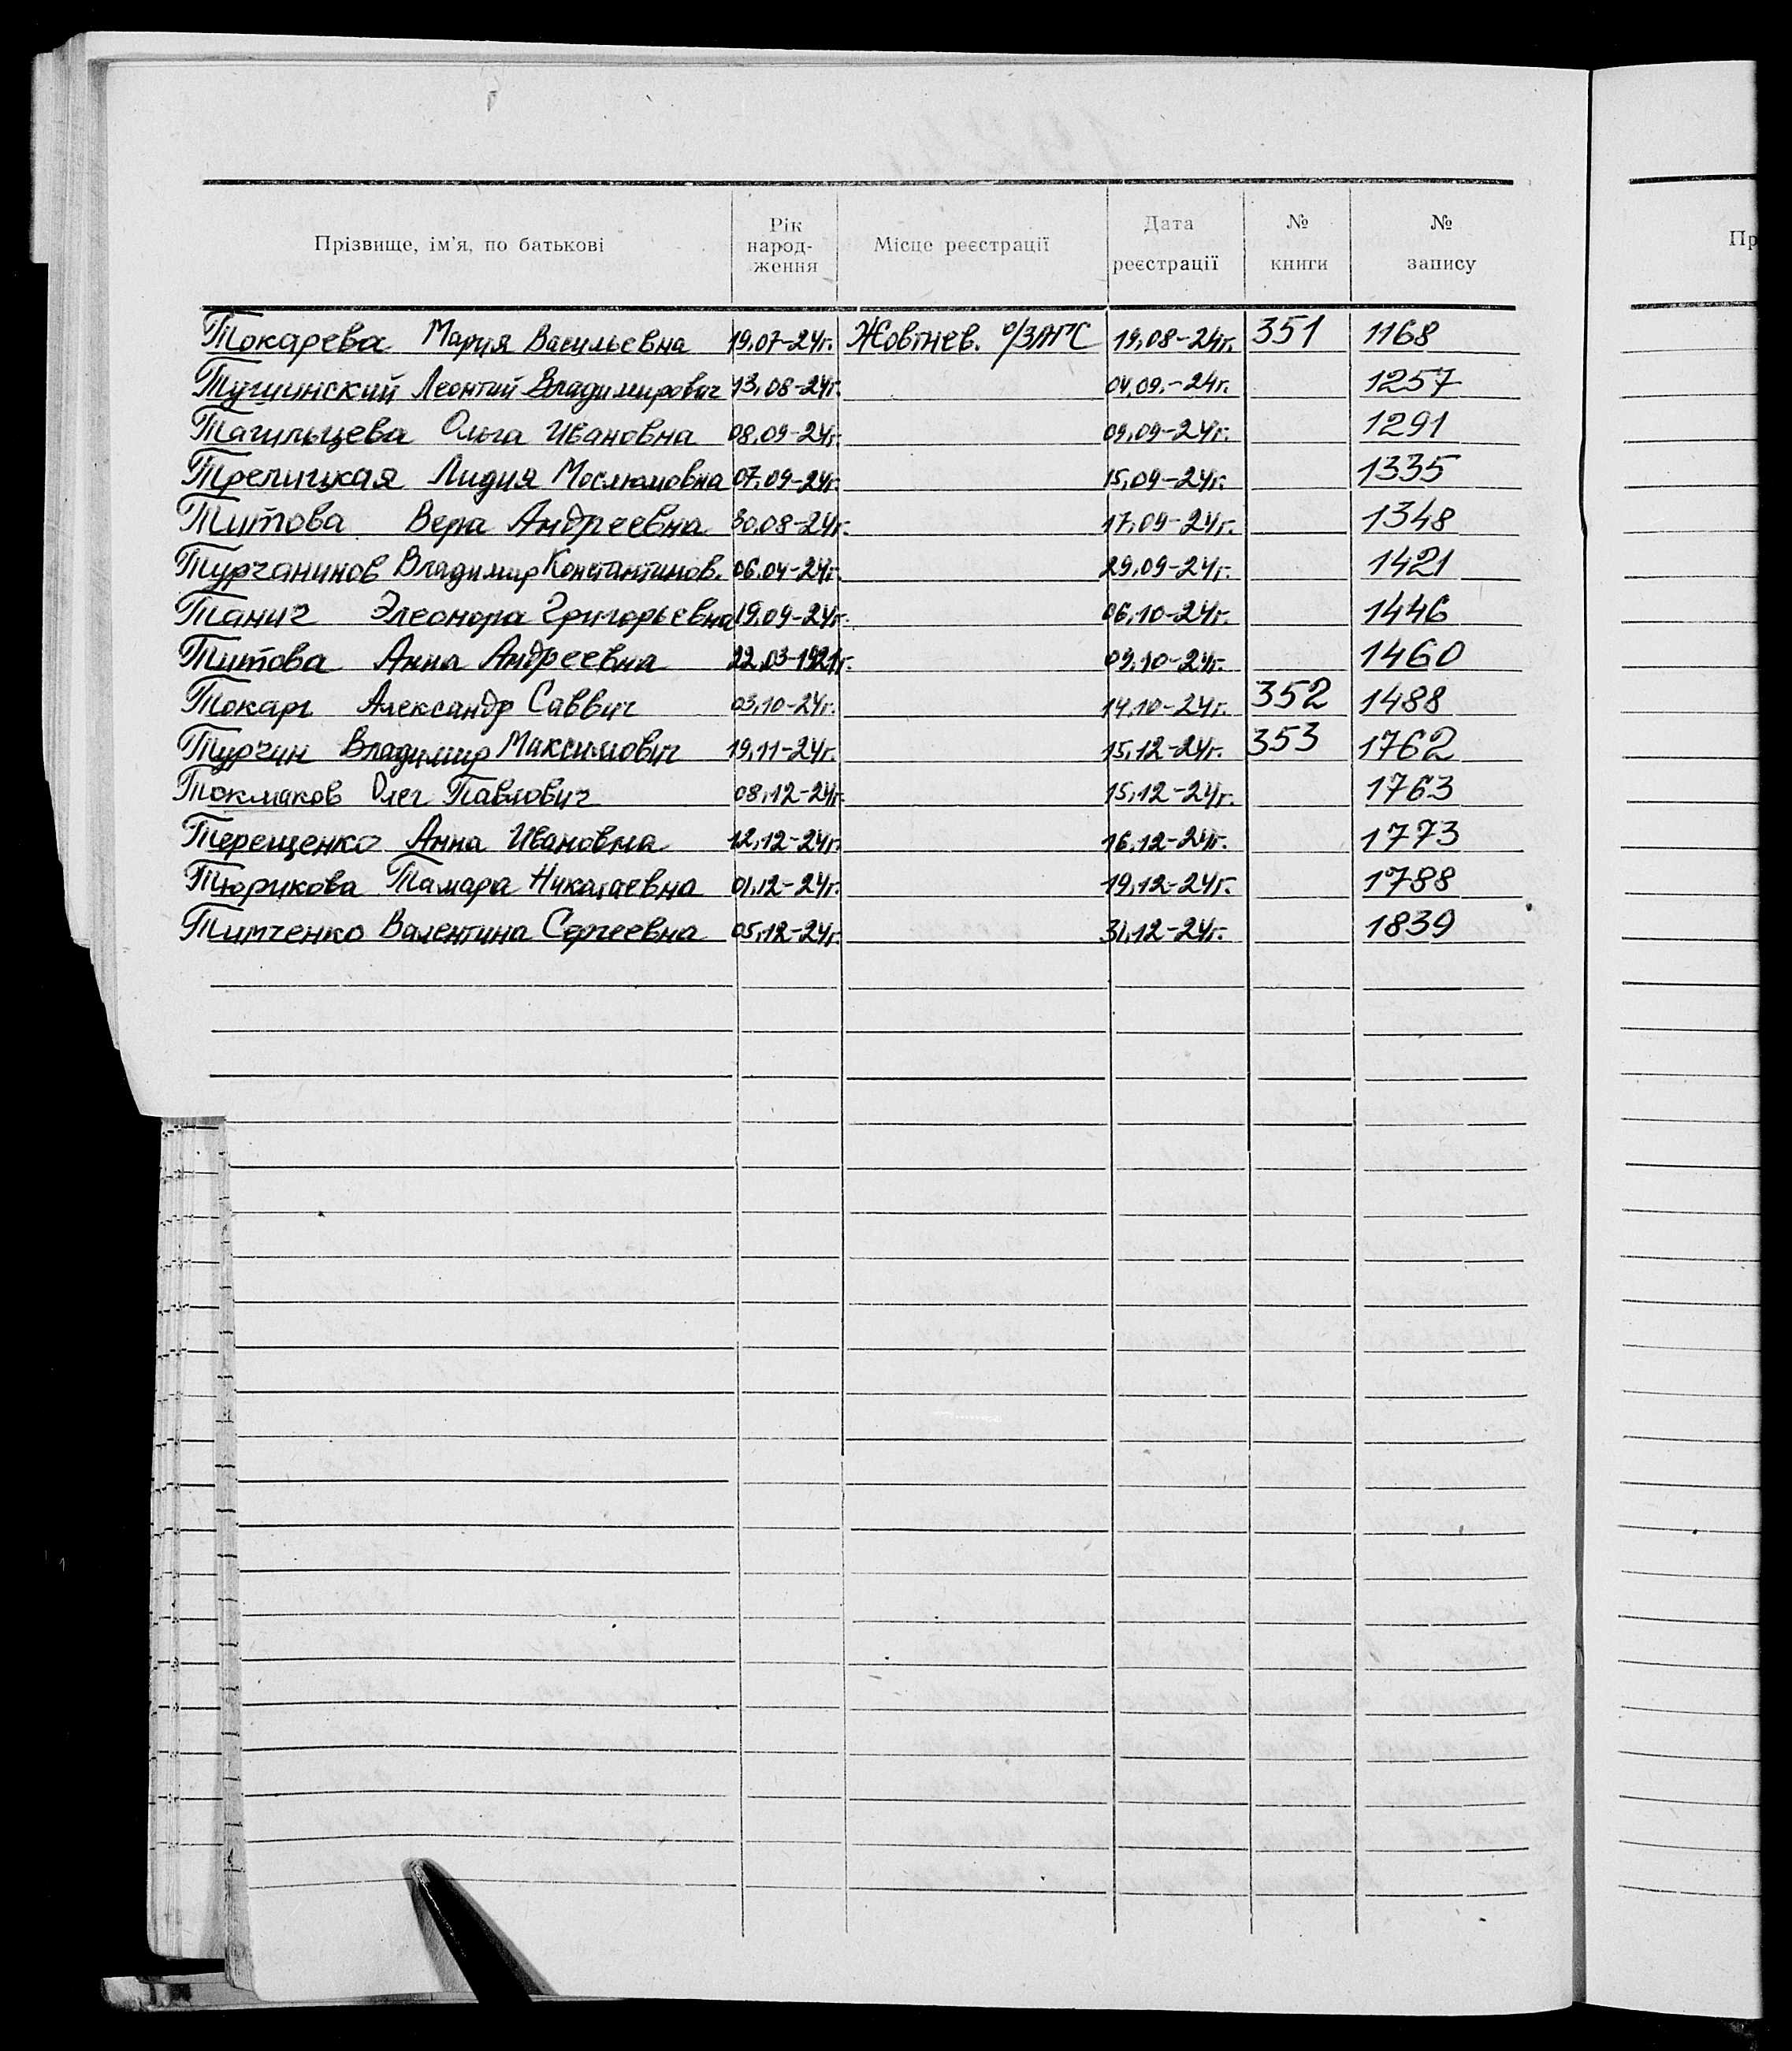 Прізвище, ім'я, по батькові Рік народ-ження Місце реєстрації Дата реєстрації № книги № запису Пр
Токарева Мария Васильевна 19.07-24г. Жовтнев. о/ЗАГС 19.08-24г. 351 1168
Тушинский Леонтий Владимирович 13.08-24г. 04.09.-24г. 1257
Тагильцева Ольга Ивановна 08.09-24г. 09.09-24г. 1291
Трепицкая Лидия 07.09-24г. 15.09-24г. 1335
Титова Вера Андреевна 30.08-24г. 17.09-24г. 1348
Турчанинов Владимир Константинов. 06.04-24г. 29.09-24г. 1421
Танич Элеонора Григорьевна 19.09-24г. 06.10-24г. 1446
Титова Анна Андреевна 22.03-1921г. 09.10-24г. 1460
Токарь Александр Саввич 03.10-24г. 14.10-24г. 352 1488
Турчин Владимир Максимович 19.11-24г. 15.12-24г. 353 1762
Токмаков Олег Павлович 08.12-24г. 15.12-24г. 1763
Терещенко Анна Ивановна 12.12-24г. 16.12-24г. 1773
Тюрикова Тамара Николаевна 01.12-24г. 19.12-24г. 1788
Тимченко Валентина Сергеевна 05.12-24г. 31.12-24г. 1839